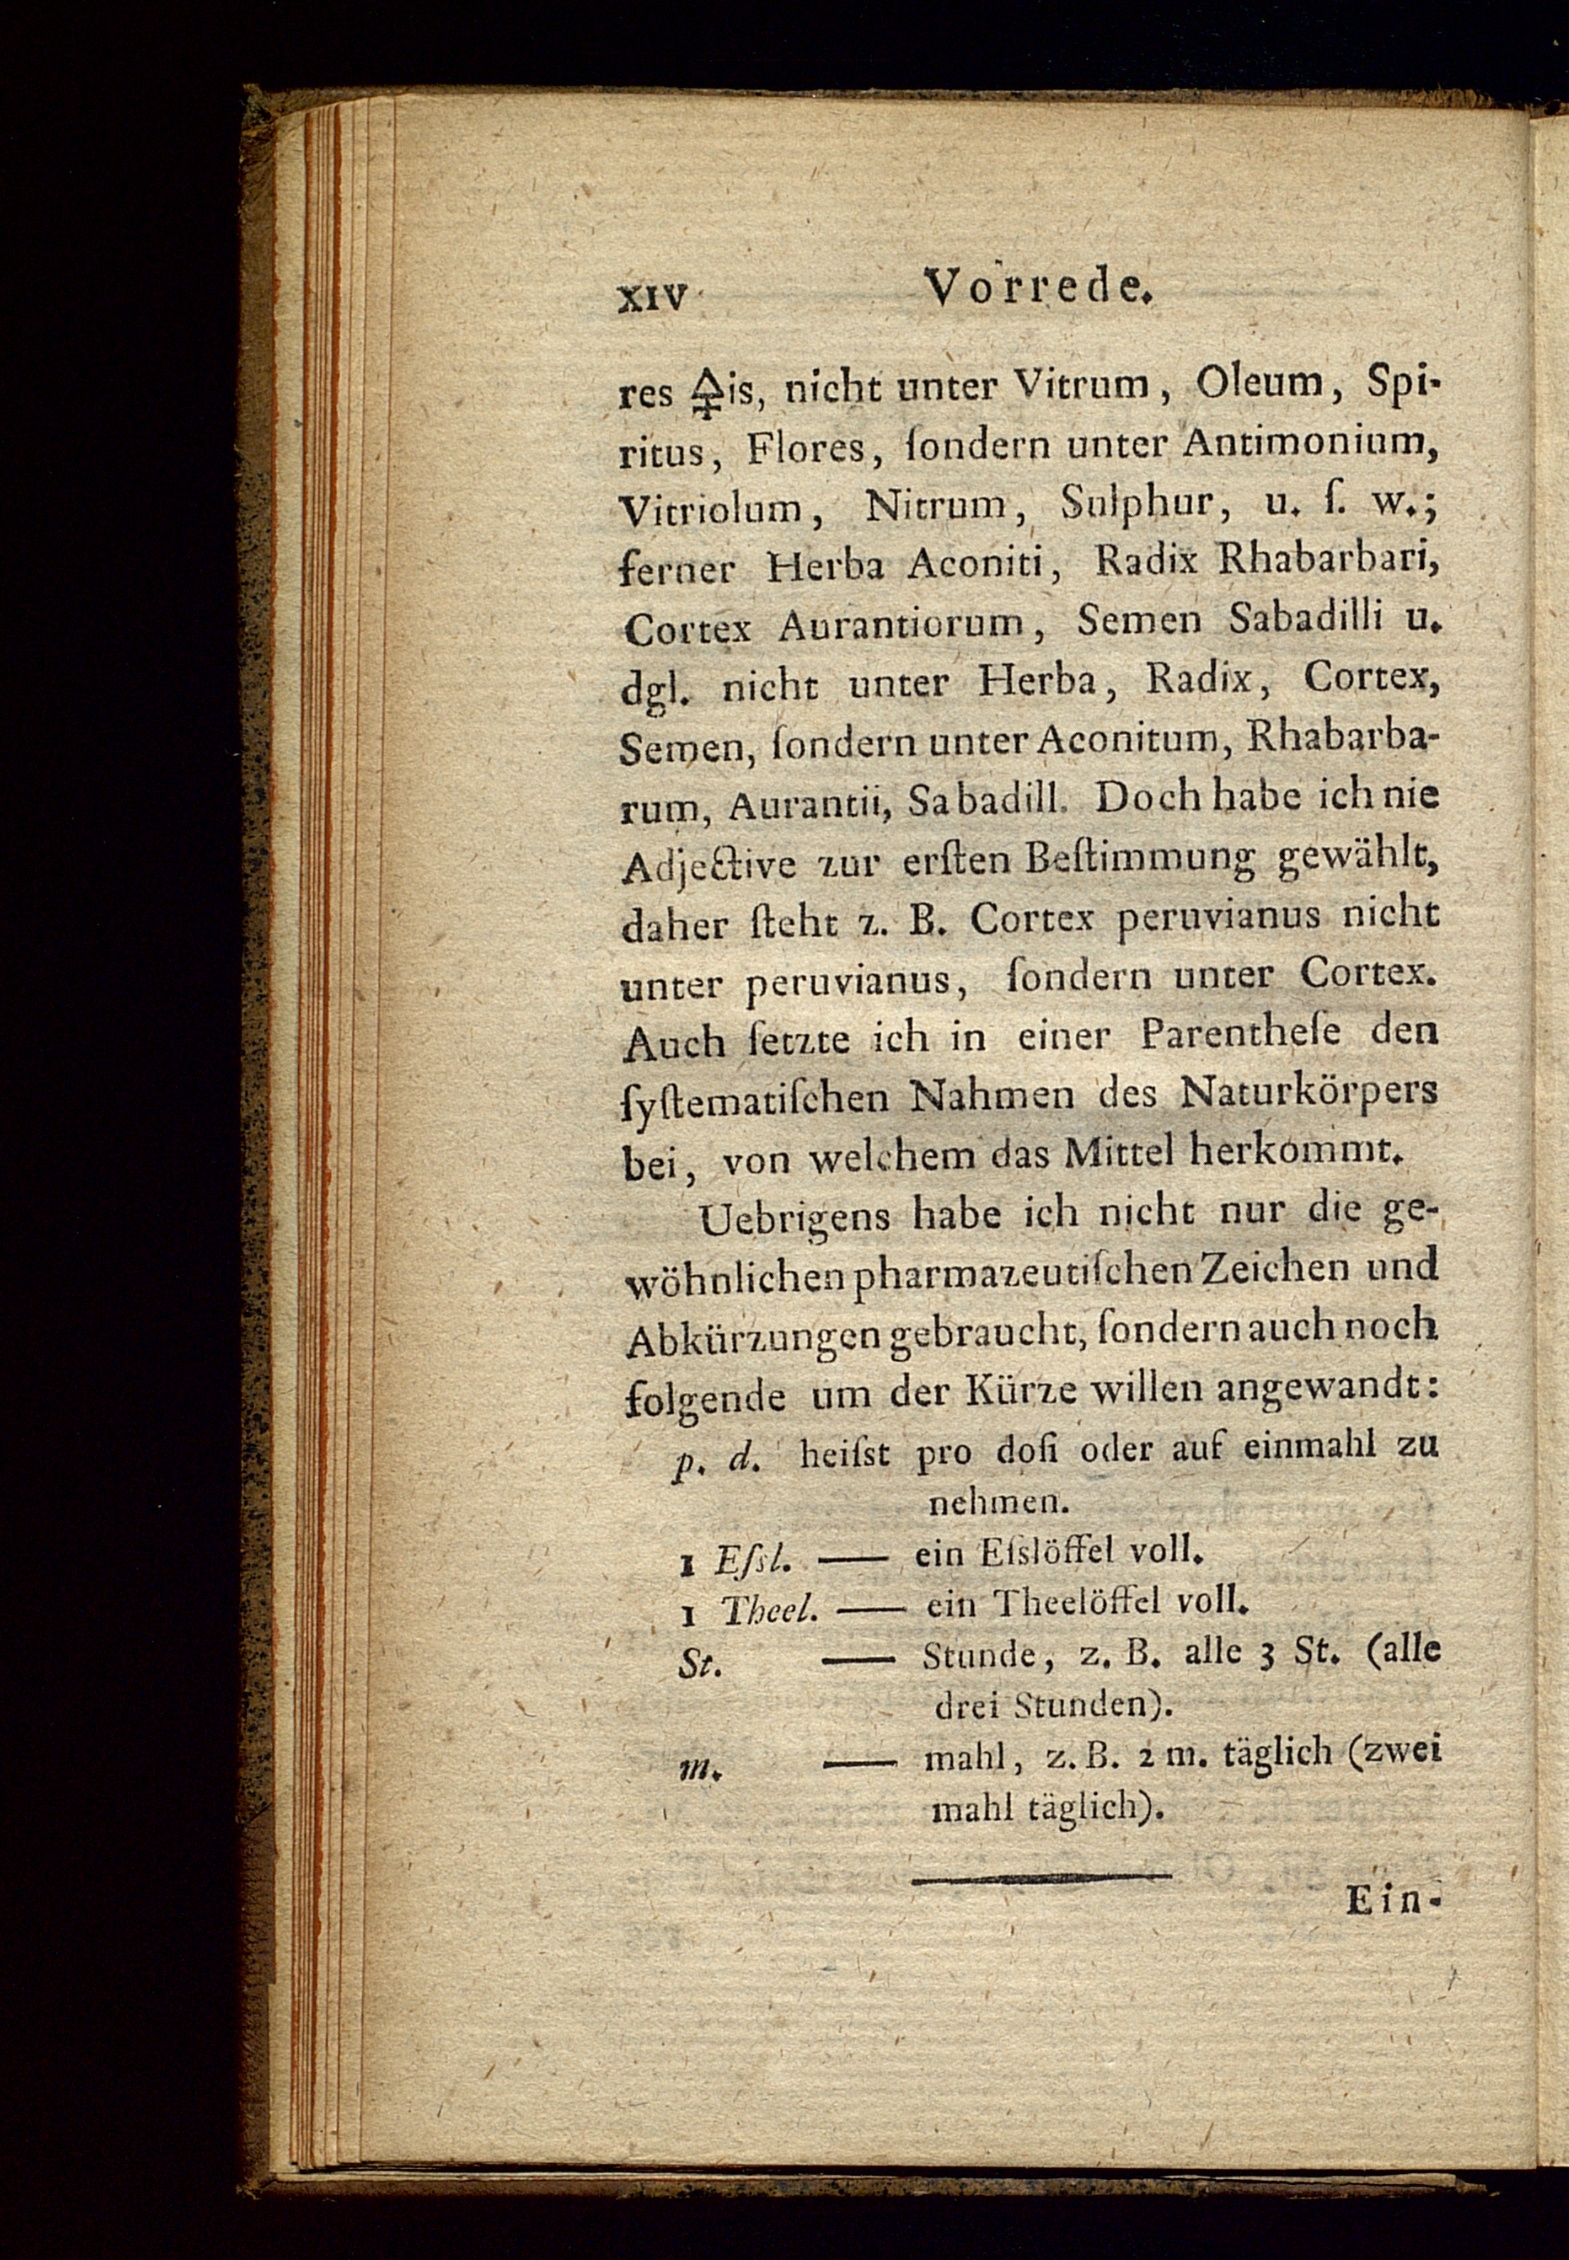 XIV Vorrede.
res 🜍is, nicht unter Vitrum, Oleum, Spi-
ritus, Flores, ſondern unter Antimonium,
Vitriolum, Nitrum, Sulphur, u. ſ. w.;
ferner Herba Aconiti, Radix Rhabarbari,
Cortex Aurantiorum, Semen Sabadilli u.
dgl. nicht unter Herba, Radix, Cortex,
Semen, ſondern unter Aconitum, Rhabarba-
rum, Aurantii, Sabadill. Doch habe ich nie
Adjective zur erſten Beſtimmung gewählt,
daher ſteht z. B. Cortex peruvianus nicht
unter peruvianus, ſondern unter Cortex.
Auch ſetzte ich in einer Parentheſe den
ſyſtematiſchen Nahmen des Naturkörpers
bei, von welchem das Mittel herkommt.
Uebrigens habe ich nicht nur die ge-
wöhnlichen pharmazeutiſchen Zeichen und
Abkürzungen gebraucht, ſondern auch noch
folgende um der Kürze willen angewandt:
p. d. heiſst pro doſi oder auf einmahl zu
nehmen.
1 Eſsl. — ein Eſslöffel voll.
1 Theel. — ein Theelöffel voll.
St. — Stunde, z. B. alle 3 St. (alle
drei Stunden).
m. — mahl, z. B. 2 m. täglich (zwei
mahl täglich).
Ein-